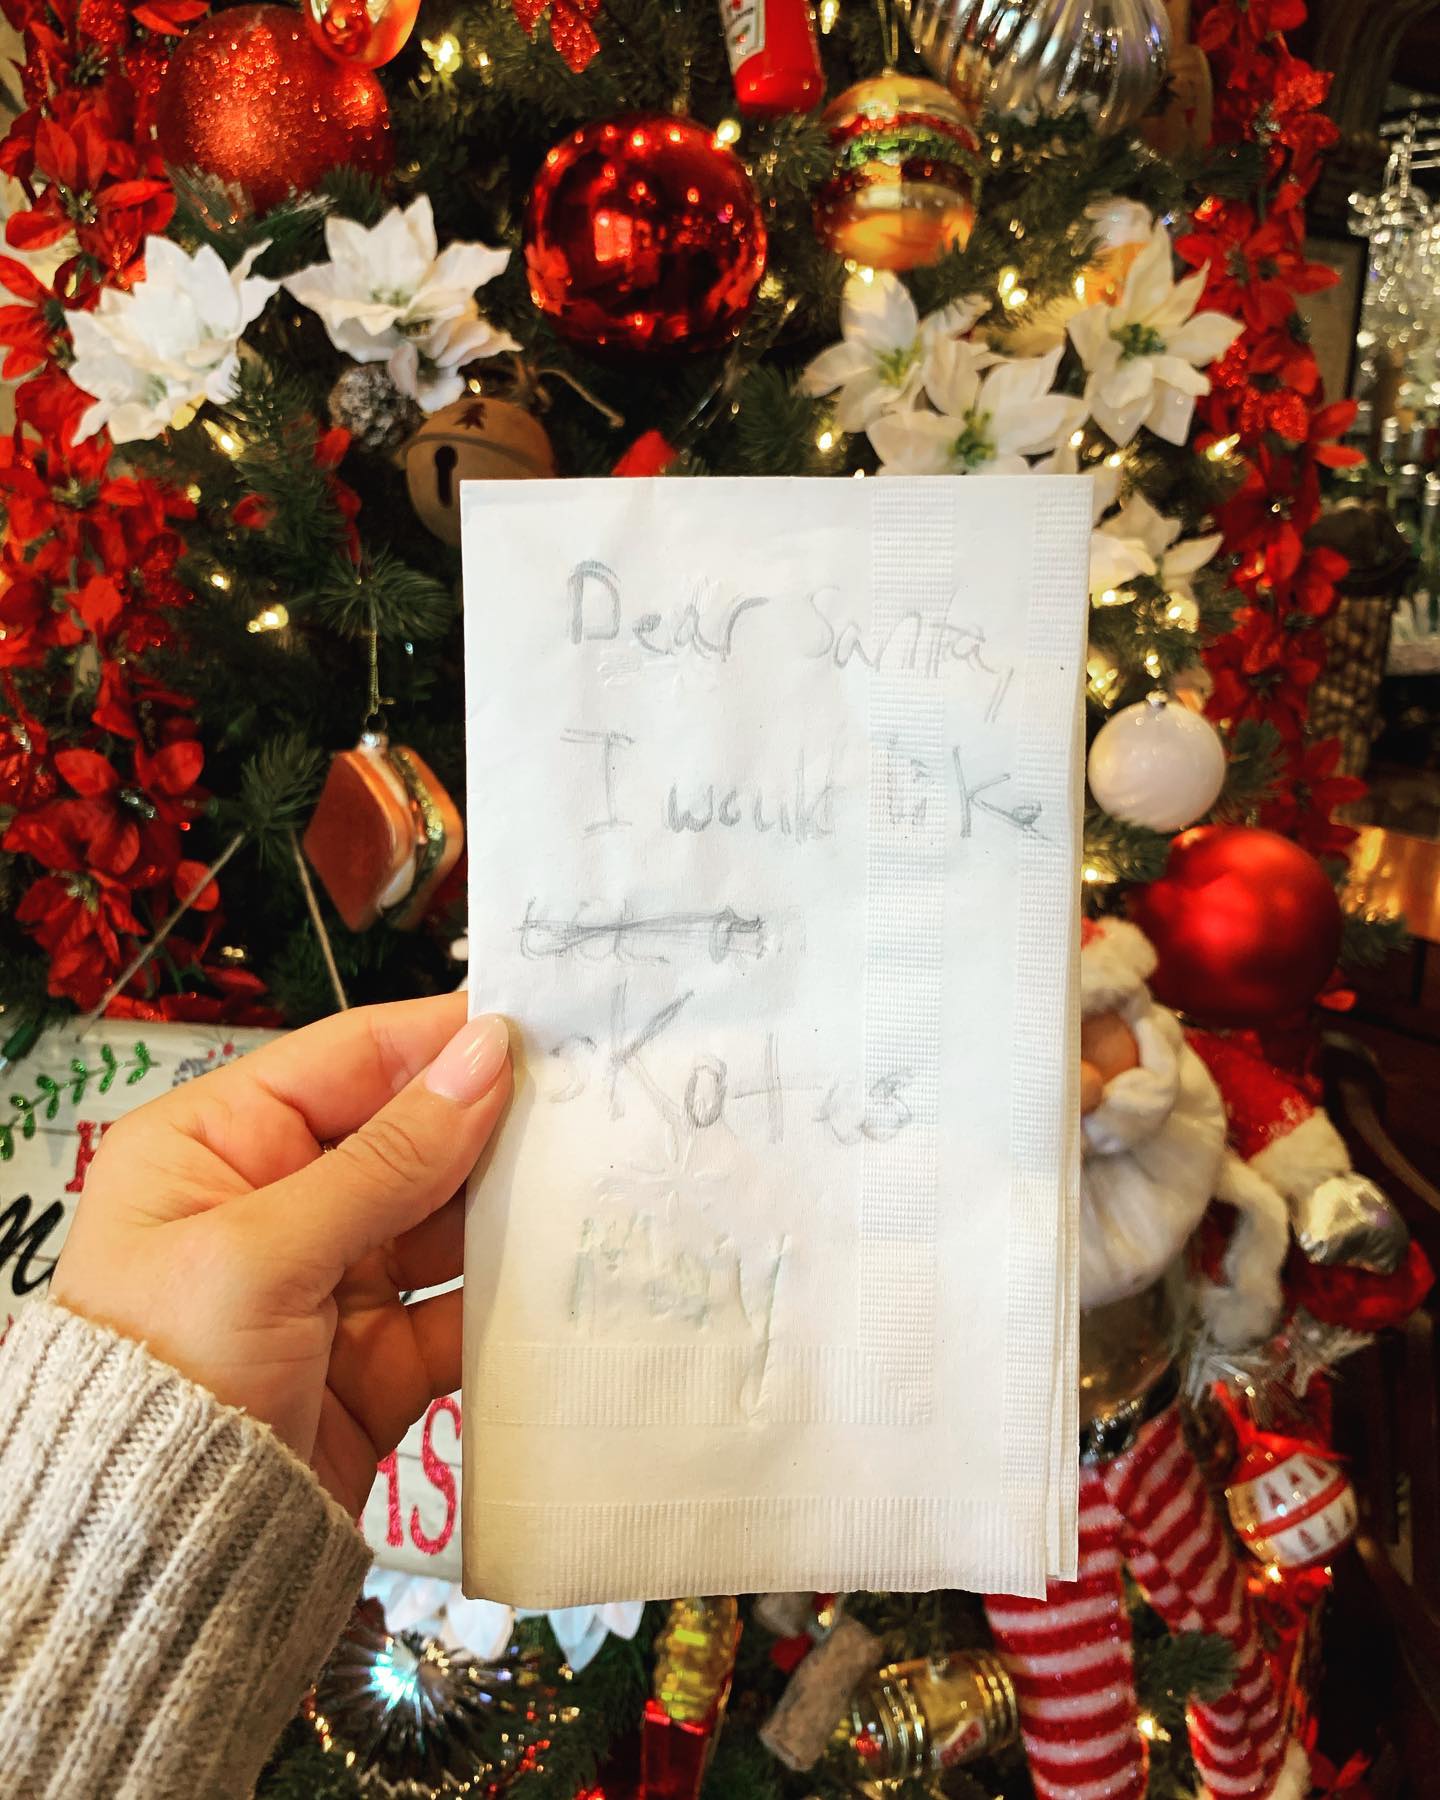 Dear Santa,
I would like
skates
May
AS